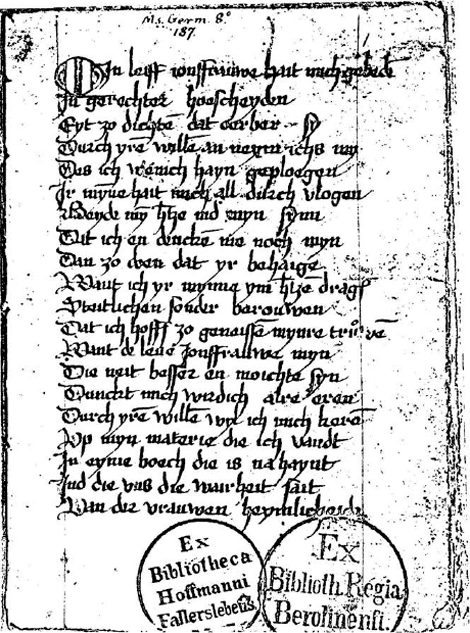 Ms. Germ. 8°
187.
Min leiff jonffrauwe hait mich gebeden
In gerechter hoescheyden
Eyt zo dichtē dat eerber sy
Durch yrē willē an neym ichs my
Des ich wenich hayn geploegen
Ir mȳne hait mich all durch vlogen
Beyde myn htze ind myn synn
Dat ich en denckē nie noch myn
Dan zo doen dat yr behaige
Want ich yr mynne ym htzē drage
Stentlichen sonder berouwen
Dat ich hoff zo geneissē mynre truwē
Want de leue Jonffrauwe myn
Die neit besser en moichte syn
Dunckt mich wirdich alre eren
Durch yrē willē wyl ich mich kerē
Vp myn materie die ich vandt
In eyme boech die is na haynt
Ind die vns die wairheit sait
Van der vrauwen heymlicheide
Ex
Bibliotheca
Hoffmanni
Fallerslebens.
Ex
Biblioth. Regia
Berolinensi.